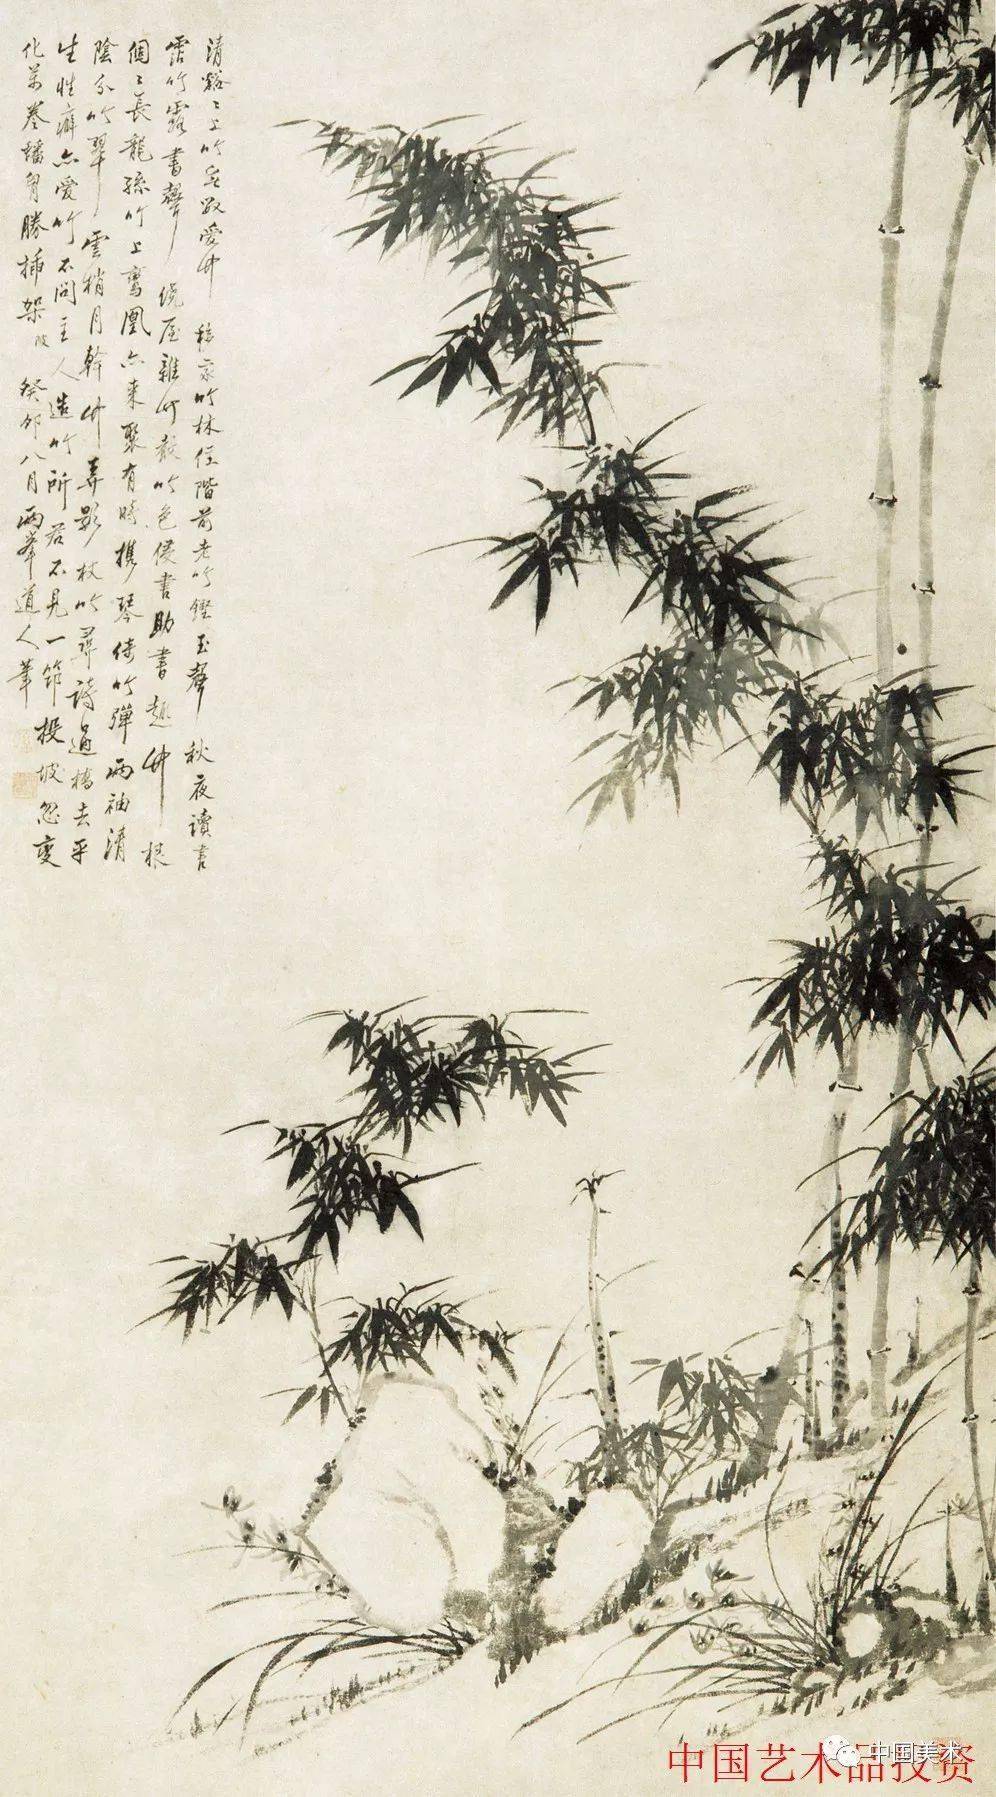 清谿之上竹無數愛竹 移家竹林住階前老竹鏗玉聲 秋夜讀書
竹露書聲 繞屋 竹色侵書助書 根
個個長龍孫竹上鸞鳳亦來聚有時攜琴倚竹彈兩袖清
陰分竹翠 雲梢月幹 弄影杖竹尋詩過橋去平
生性癖亦愛竹不問主人造竹所君不見一節投坡忽變
化 勝插架 癸卯八月兩峯道人筆
中国美术
中国艺术品投资